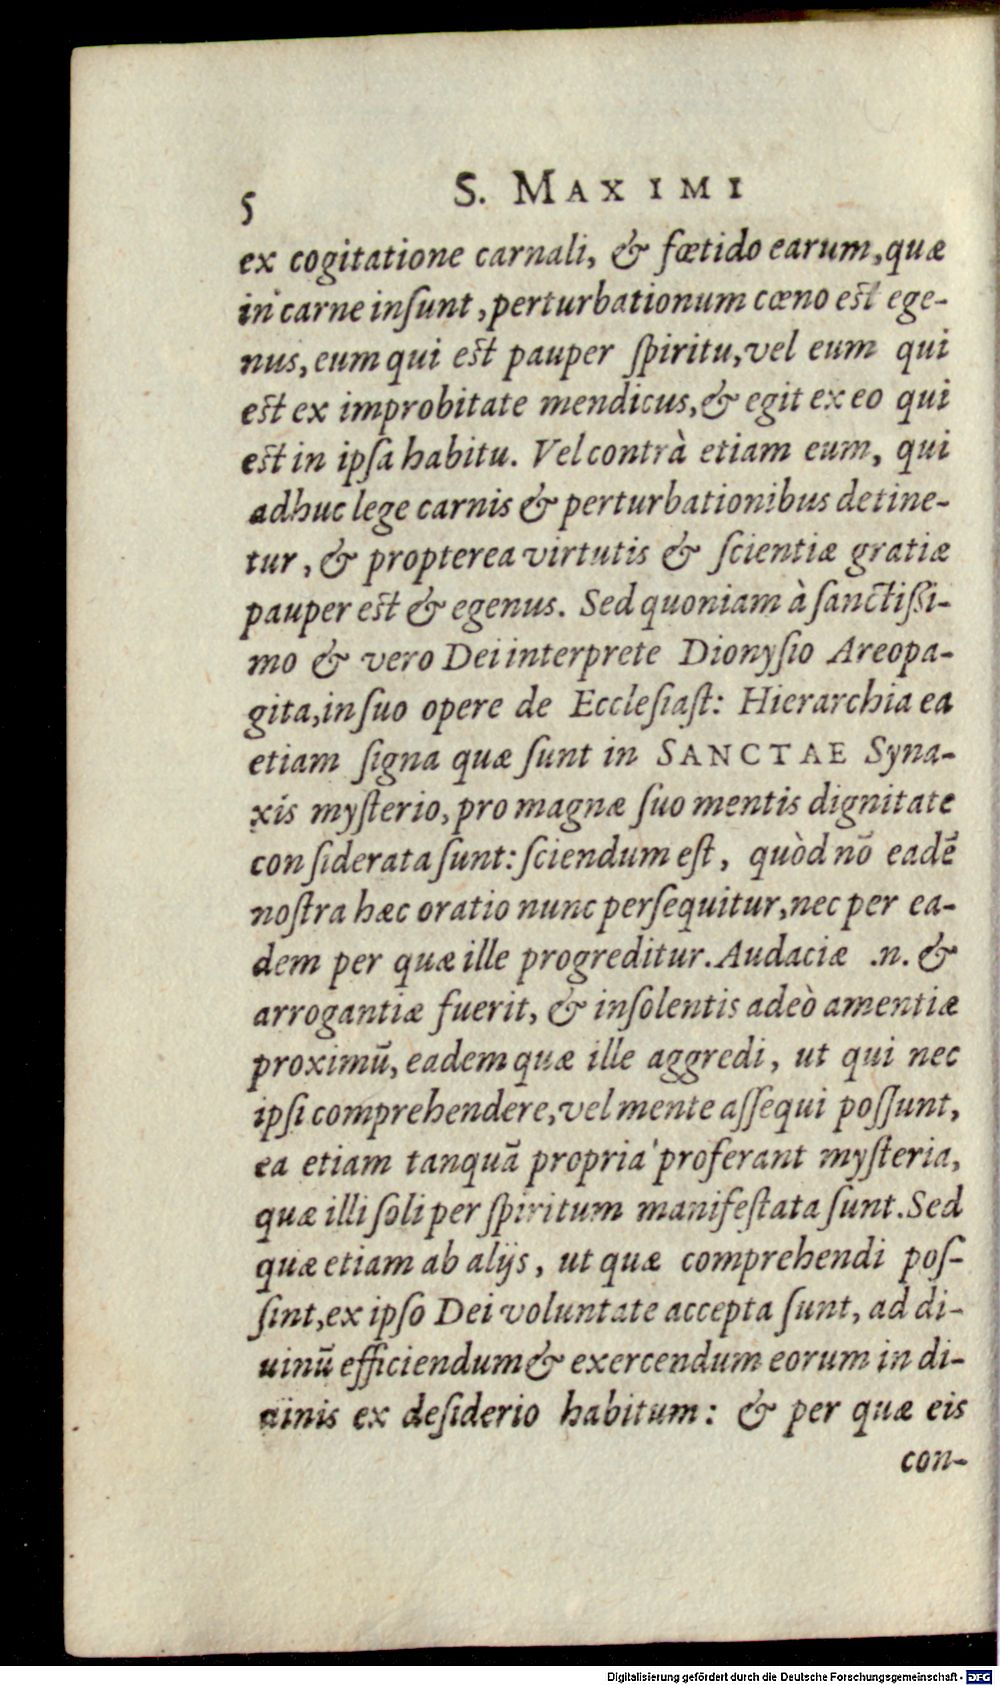 5 S. MAXIMI
ex cogitatione carnali, & fœtido earum, quæ
in carne inſunt, perturbationum cæno est ege-
nus, eum qui est pauper ſpiritu, vel eum qui
est ex improbitate mendicus, & egit ex eo qui
est in ipſa habitu. Vel contrà etiam eum, qui
adhuc lege carnis & perturbationibus detine-
tur, & propterea virtutis & ſcientiæ gratiæ
pauper est & egenus. Sed quoniam à ſanctiſſi-
mo & vero Dei interprete Dionyſio Areopa-
gita, in ſuo opere de Eccleſiaſt: Hierarchia ea
etiam ſigna quæ ſunt in SANCTAE Syna-
xis myſterio, pro magnæ ſuo mentis dignitate
conſiderata ſunt: ſciendum eſt, quòd nō eadē
noſtra hæc oratio nunc perſequitur, nec per ea-
dem per quæ ille progreditur. Audaciæ .n. &
arrogantiæ fuerit, & inſolentis adeò amentiæ
proximū, eadem quæ ille aggredi, ut qui nec
ipſi comprehendere, vel mente aſſequi poſſunt,
ea etiam tanquā propria proferant myſteria,
quæ illi ſoli per ſpiritum manifeſtata ſunt. Sed
quæ etiam ab alijs, ut quæ comprehendi poſ-
ſint, ex ipſo Dei voluntate accepta ſunt, ad di-
uinū efficiendum & exercendum eorum in di-
uinis ex deſiderio habitum: & per quæ eis
con-
Digitalisierung gefördert durch die Deutsche Forschungsgemeinschaft - DFG